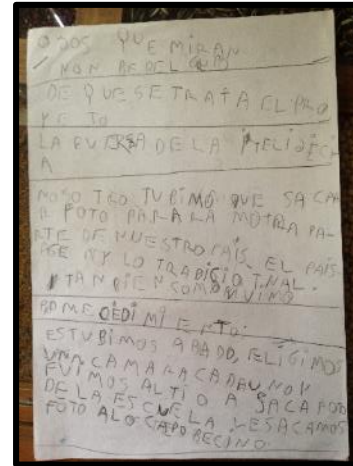 OJOS QUE MIRAN
NON BE DEL
DE QUE SE TRATA EL PRO
YE TO
LA FUERSA DE LA
A
NOSO TGO TUBIMO QUE SACAR
A FOTO PARA LA MOTRA PA
RTE DE NUESTRO PAIS EL PAIS
AGE Y LO TRADISIO NAL.
TANBIEN COMO VIVIMO
ESTUBIMOS A FELIGIMOS
UNA CAMARA CADA UNO Y
FUIMOS AL TIO A SACA FOTO
DE LA ESCUELA Y ESACAMOS
FOTO A LO CAPO BECINO